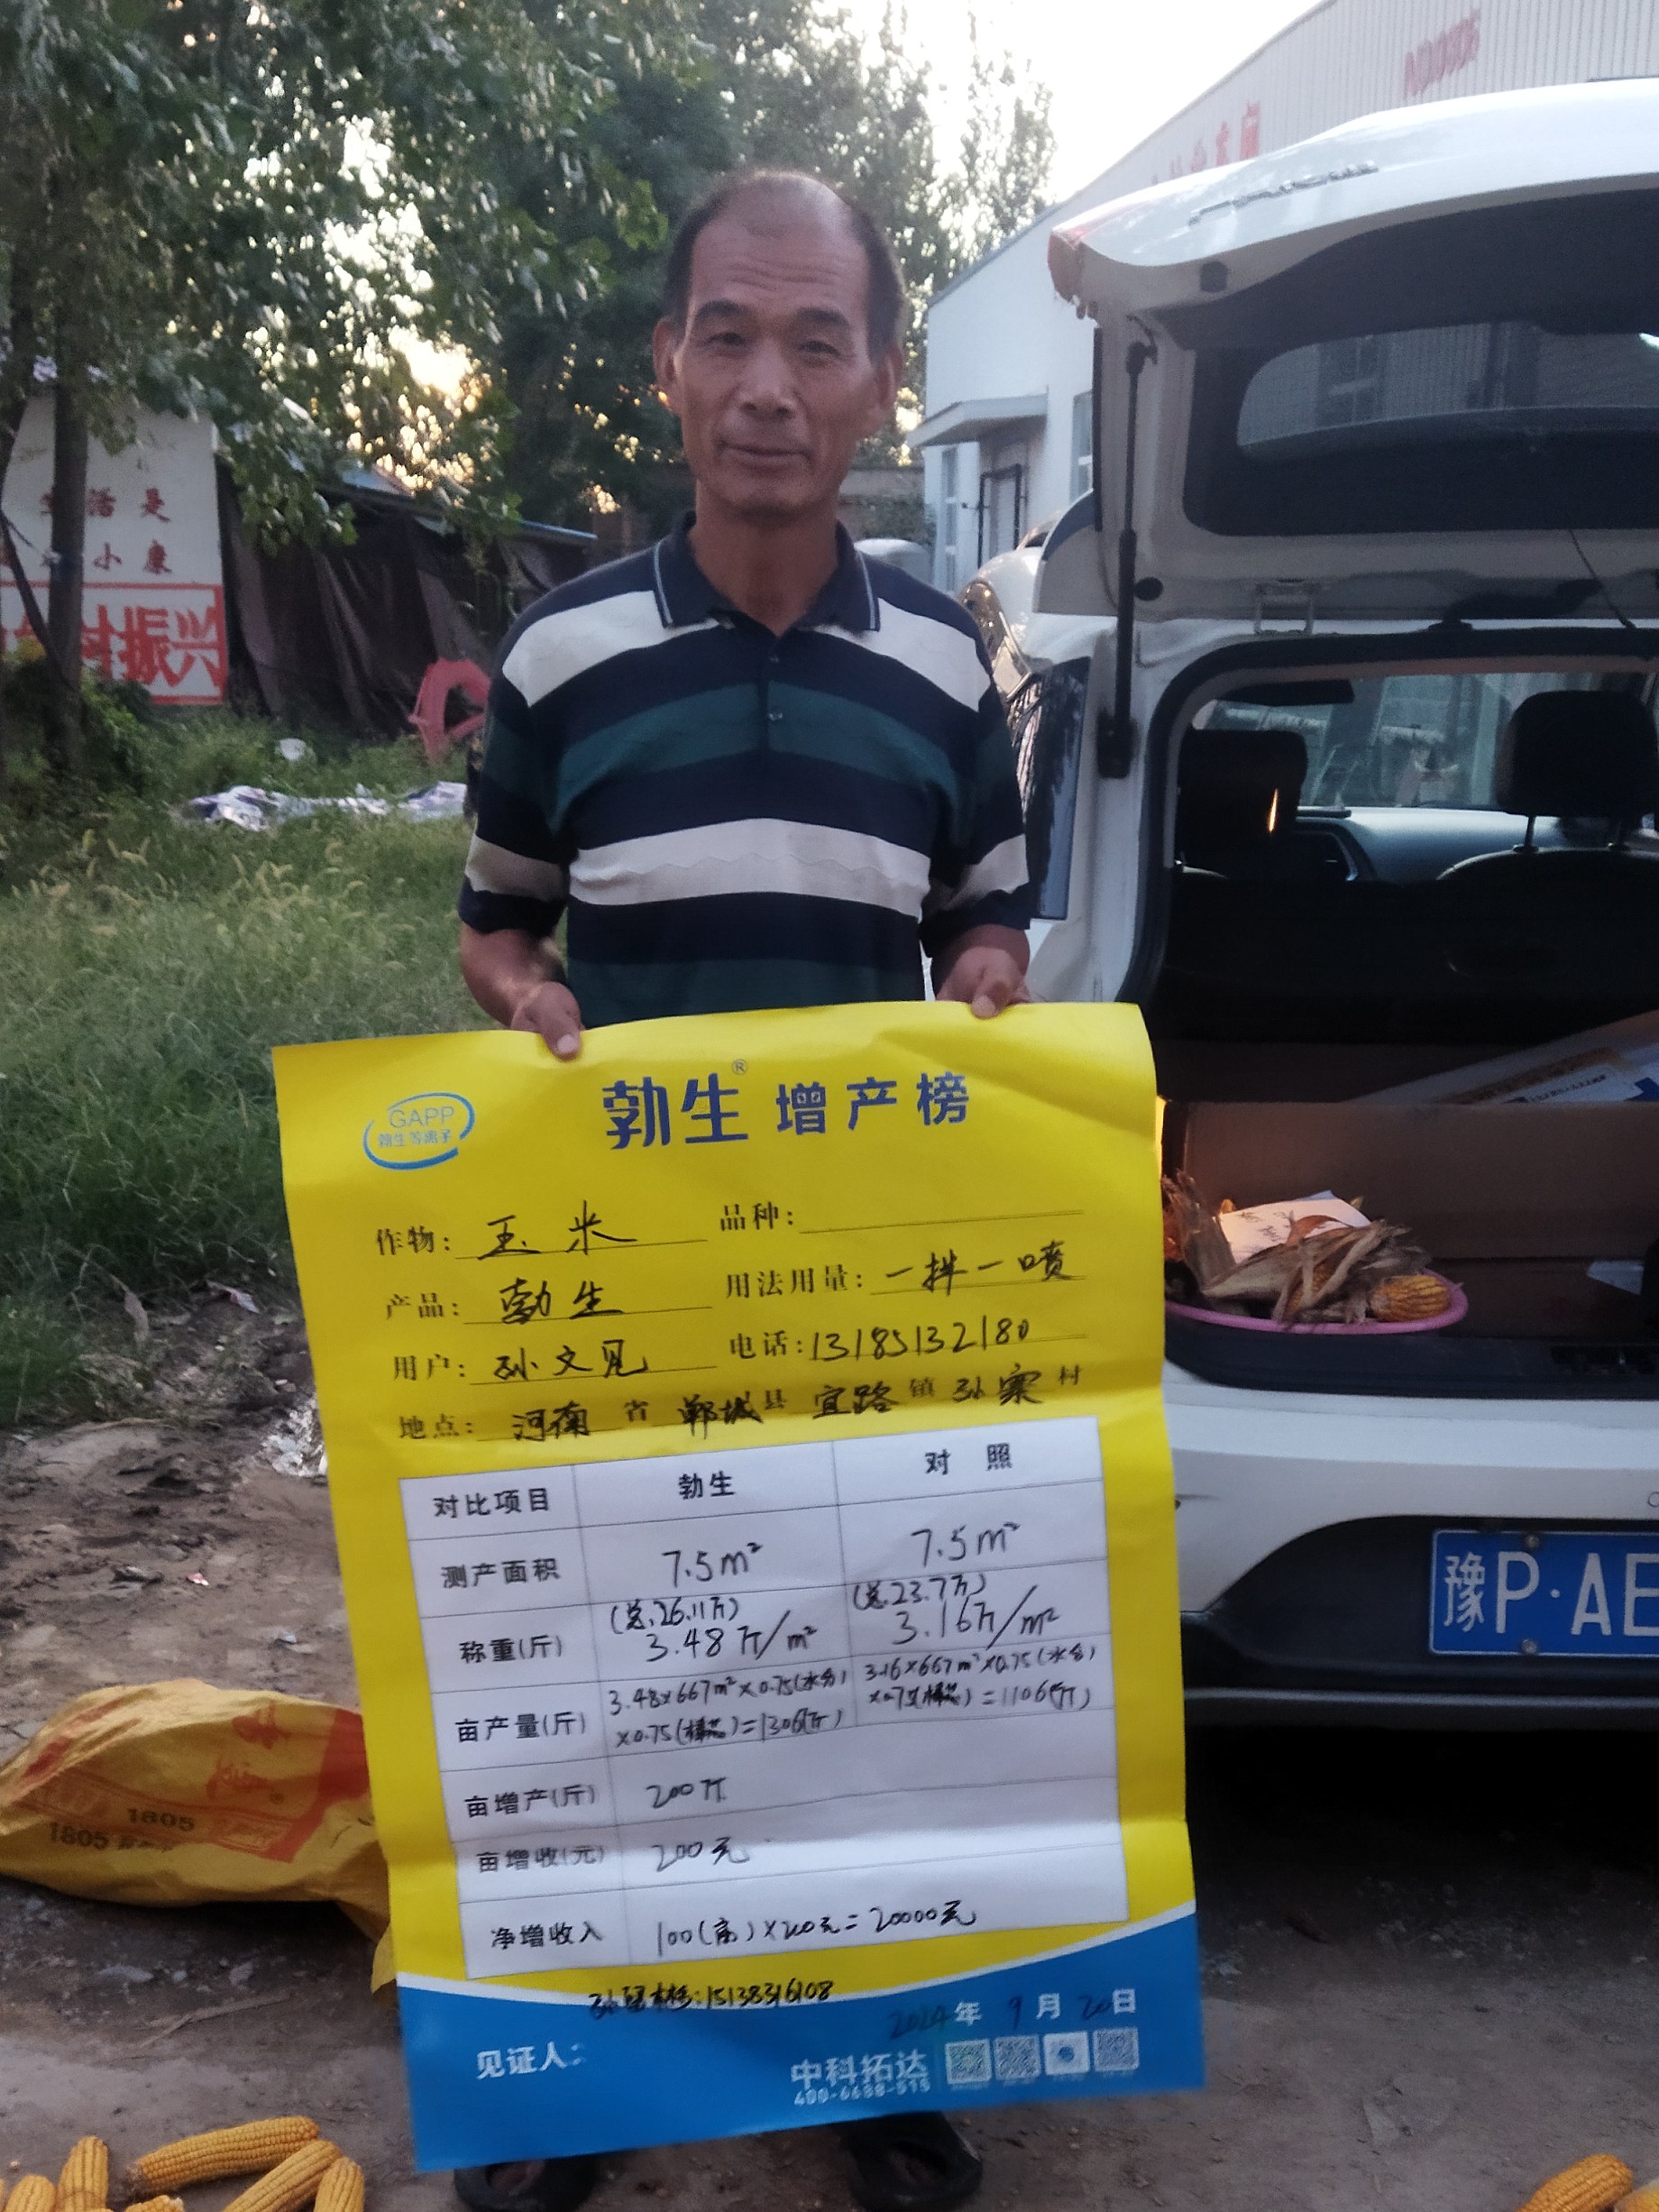 生活是
小康
村振兴
GAPP
勃生等离子
勃生® 增产榜
作物: 玉米 品种:
产品: 勃生 用法用量: 一拌一喷
用户: 孙文见 电话: 13185132180
地点: 河南省郸城县宜路镇孙寨村
对比项目 勃生 对照
测产面积 7.5m² 7.5m²
(总.26.11斤) (总.23.7斤)
称重(斤) 3.48斤/m² 3.16斤/m²
3.48×667m²×0.75(水分) 3.16×667m²×0.75(水分)
亩产量(斤) ×0.75(棒芯)=1306(斤) ×0.75(棒芯)=1106(斤)
亩增产(斤) 200斤
亩增收(元) 200元
净增收入 100(亩)×200元=20000元
15138316108
2024年9月20日
见证人:
中科拓达
豫P·AE
1805
1805